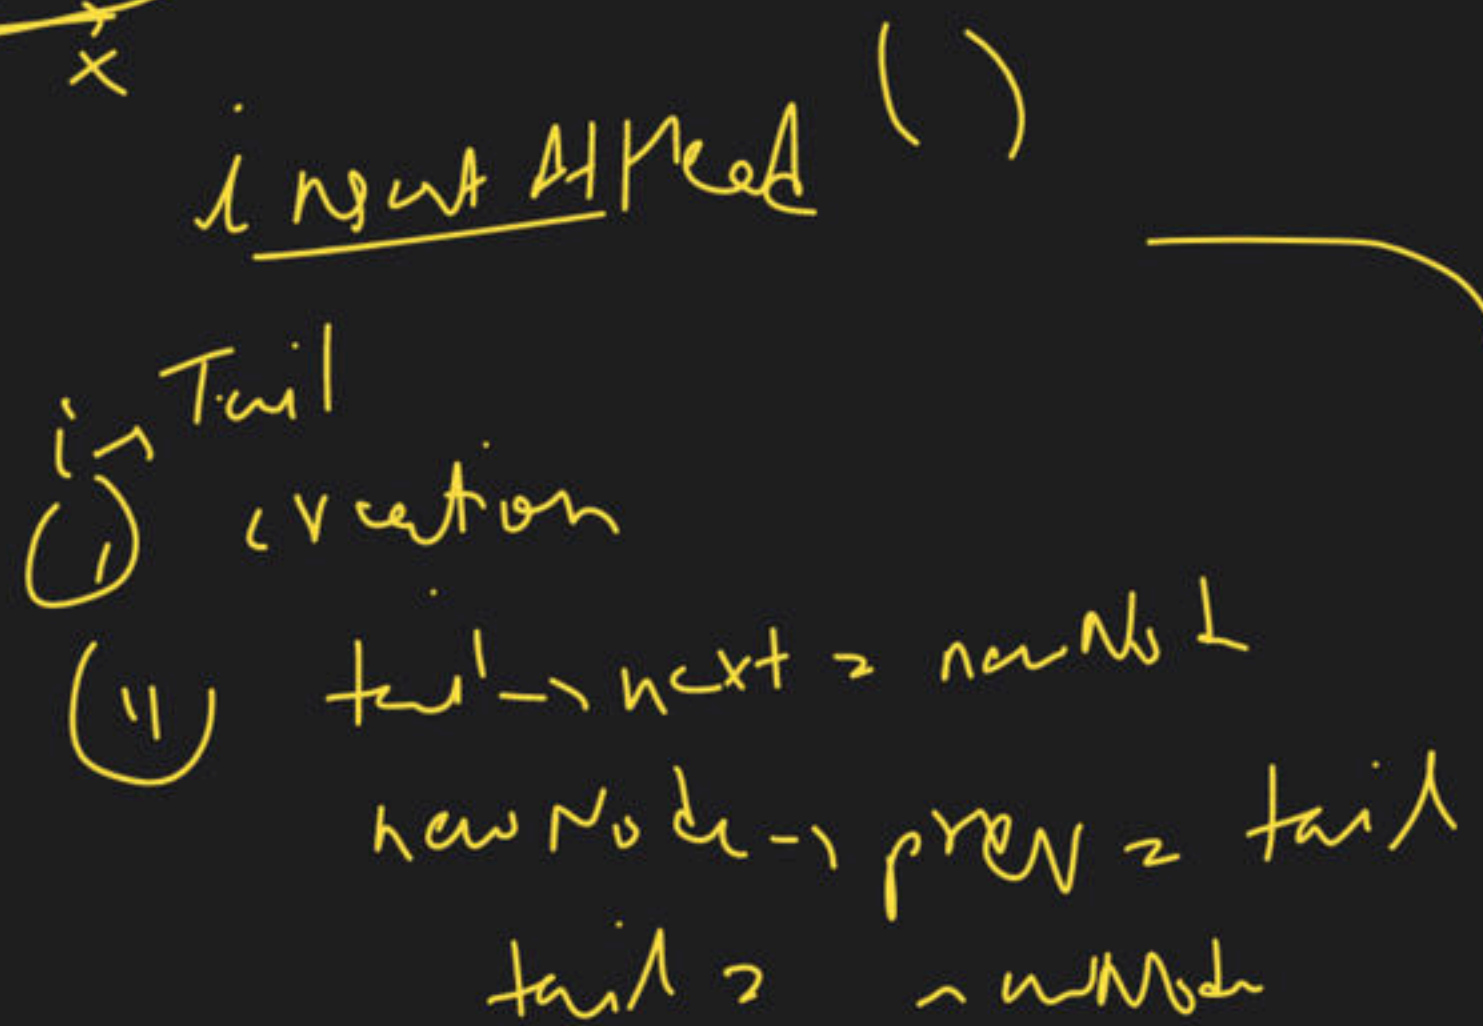 x
insertAtHead ()
in Tail
(I) creation
(II) tail -> next = newNode
newNode -> prev = tail
tail = newNode